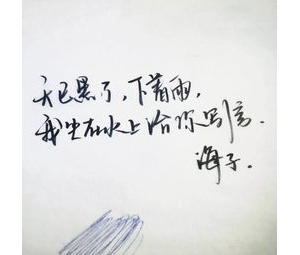 天已黑了，下着雨，
我坐在水上给你写信．
海子．